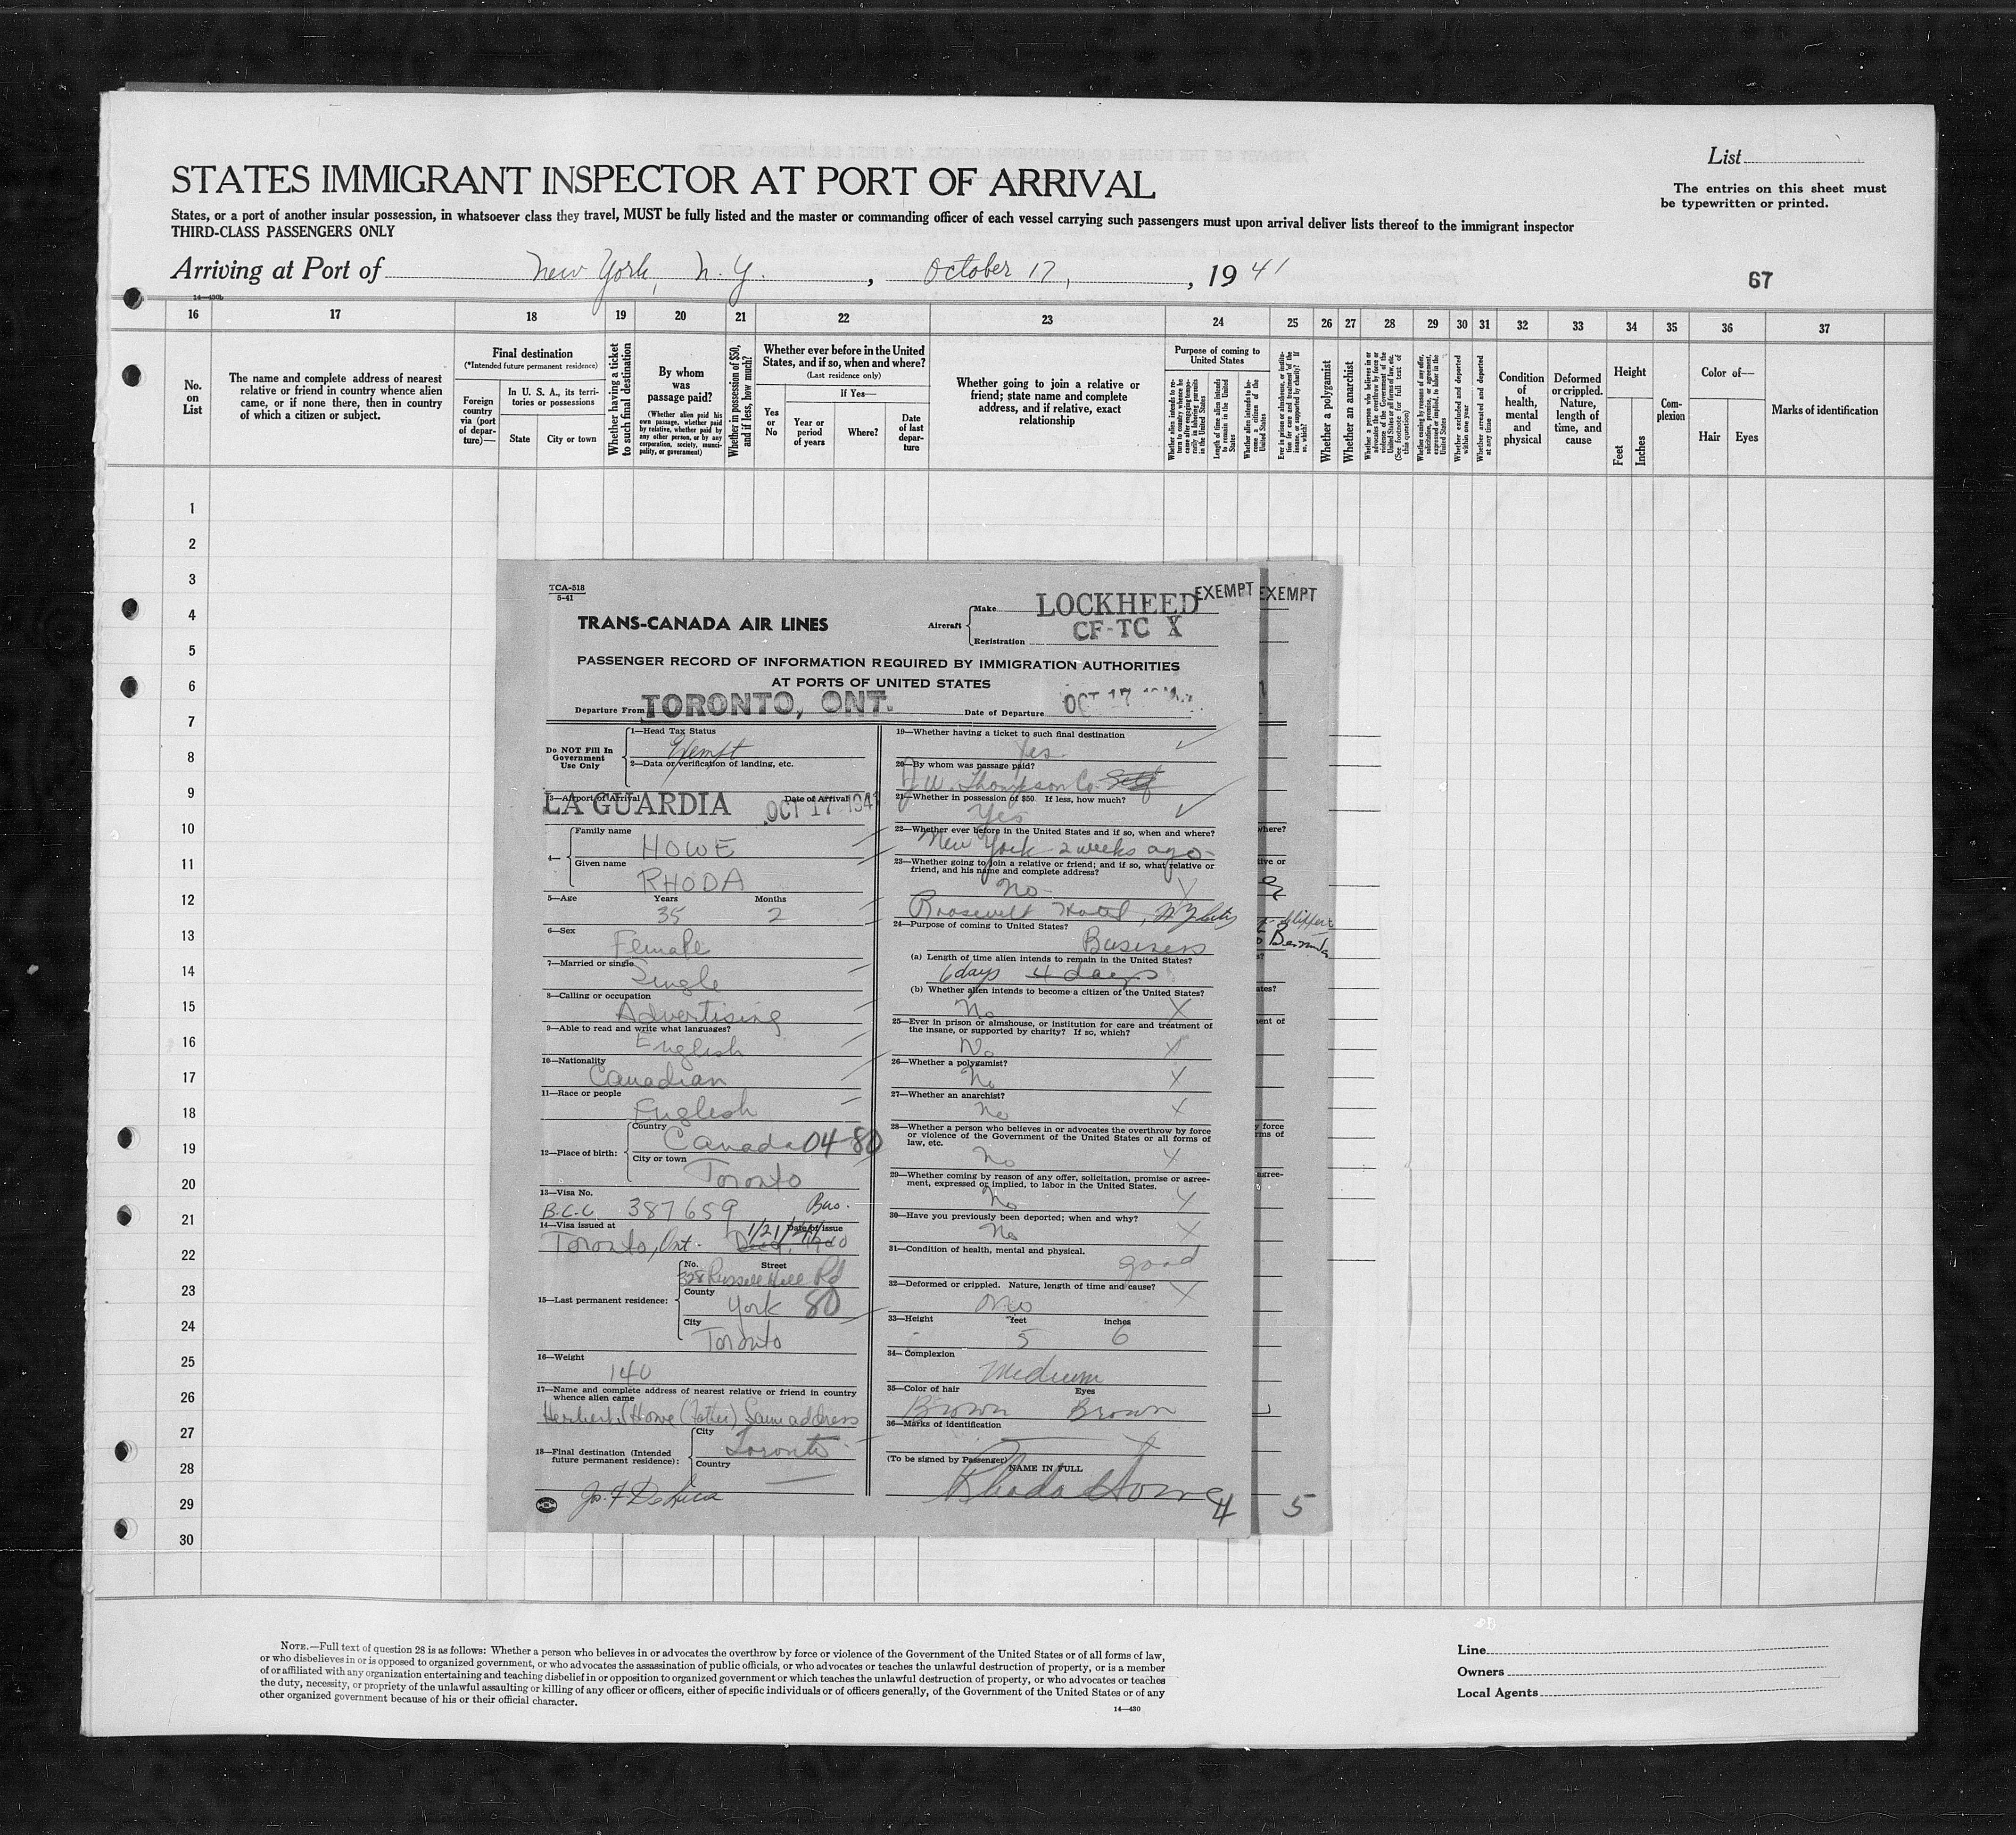 List
STATES IMMIGRANT INSPECTOR AT PORT OF ARRIVAL
The entries on this sheet must
be typewritten or printed.
States, or a port of another insular possession, in whatsoever class they travel, MUST be fully listed and the master or commanding officer of each vessel carrying such passengers must upon arrival deliver lists thereof to the immigrant inspector
THIRD-CLASS PASSENGERS ONLY
Arriving at Port of New York, N. Y., October 17, 1941
67
14—430b
16 17 18 19 20 21 22 23 24 25 26 27 28 29 30 31 32 33 34 35 36 37
No. on List
The name and complete address of nearest relative or friend in country whence alien came, or if none there, then in country of which a citizen or subject.
Final destination
(*Intended future permanent residence)
Foreign country via (port of departure)—
In U. S. A., its territories or possessions
State
City or town
Whether having a ticket to such final destination
By whom was passage paid?
(Whether alien paid his own passage, whether paid by relative, whether paid by any other person, or by any corporation, society, municipality, or government)
Whether in possession of $50, and if less, how much?
Whether ever before in the United States, and if so, when and where?
(Last residence only)
Yes or No
If Yes—
Year or period of years
Where?
Date of last departure
Whether going to join a relative or friend; state name and complete address, and if relative, exact relationship
Purpose of coming to United States
Whether alien intends to return to country whence he came after engaging temporarily in laboring pursuits in the United States
Length of time alien intends to remain in the United States
Whether alien intends to become a citizen of the United States
Ever in prison or almshouse, or institution for care and treatment of the insane, or supported by charity? If so, which?
Whether a polygamist
Whether an anarchist
Whether a person who believes in or advocates the overthrow by force or violence of the Government of the United States or all forms of law, etc. (See footnote for full text of this question)
Whether coming by reason of any offer, solicitation, promise, or agreement, expressed or implied, to labor in the United States
Whether excluded and deported within one year
Whether arrested and deported at any time
Condition of health, mental and physical
Deformed or crippled. Nature, length of time, and cause
Height
Feet
Inches
Complexion
Color of—
Hair
Eyes
Marks of identification
1
2
3
4
5
6
7
8
9
10
11
12
13
14
15
16
17
18
19
20
21
22
23
24
25
26
27
28
29
30
TCA-518
5-41
TRANS-CANADA AIR LINES
Aircraft
Make LOCKHEED
Registration CF-TC X
EXEMPT
EXEMPT
PASSENGER RECORD OF INFORMATION REQUIRED BY IMMIGRATION AUTHORITIES
AT PORTS OF UNITED STATES
Departure From TORONTO, ONT.
Date of Departure OCT 17
Do NOT Fill In
Government
Use Only
1—Head Tax Status
Exempt
2—Data or verification of landing, etc.
3—Airport of Arrival Date of Arrival
LA GUARDIA OCT 17 1941
4—
Family name
HOWE
Given name
RHODA
5—Age Years Months
35 2
6—Sex
Female
7—Married or single
Single
8—Calling or occupation
Advertising
9—Able to read and write what languages?
English
10—Nationality
Canadian
11—Race or people
English
12—Place of birth:
Country
Canada 04-80
City or town
Toronto
13—Visa No.
B.C.C. 387659 Bus.
14—Visa issued at Date of issue
Toronto, Ont. 1/21/41 1940
15—Last permanent residence:
No. Street
328 Russell Hill Rd
County
York 80
City
Toronto
16—Weight
140
17—Name and complete address of nearest relative or friend in country
whence alien came
Herbert Howe (Father) Same address
18—Final destination (Intended
future permanent residence):
City
Toronto
Country
19—Whether having a ticket to such final destination
Yes
20—By whom was passage paid?
J. W. Thompson Co. Self
21—Whether in possession of $50. If less, how much?
Yes
22—Whether ever before in the United States and if so, when and where?
New York 2 weeks ago
23—Whether going to join a relative or friend; and if so, what relative or
friend, and his name and complete address?
No
Roosevelt Hotel, N Y City
24—Purpose of coming to United States?
Business
(a) Length of time alien intends to remain in the United States?
6 days 4 days
(b) Whether alien intends to become a citizen of the United States?
No
25—Ever in prison or almshouse, or institution for care and treatment of
the insane, or supported by charity? If so, which?
No
26—Whether a polygamist?
No
27—Whether an anarchist?
No
28—Whether a person who believes in or advocates the overthrow by force
or violence of the Government of the United States or all forms of
law, etc.
No
29—Whether coming by reason of any offer, solicitation, promise or agree-
ment, expressed or implied, to labor in the United States.
No
30—Have you previously been deported; when and why?
No
31—Condition of health, mental and physical.
good
32—Deformed or crippled. Nature, length of time and cause?
No
33—Height feet inches
5 6
34—Complexion
Medium
35—Color of hair Eyes
Brown Brown
36—Marks of identification
(To be signed by Passenger) NAME IN FULL
Rhoda Howe
4
5
where?
tive or
Clipper
to Bermuda
s?
ates?
ent of
y force
rms of
agree-
NOTE.—Full text of question 28 is as follows: Whether a person who believes in or advocates the overthrow by force or violence of the Government of the United States or of all forms of law,
or who disbelieves in or is opposed to organized government, or who advocates the assassination of public officials, or who advocates or teaches the unlawful destruction of property, or is a member
of or affiliated with any organization entertaining and teaching disbelief in or opposition to organized government or which teaches the unlawful destruction of property, or who advocates or teaches
the duty, necessity, or propriety of the unlawful assaulting or killing of any officer or officers, either of specific individuals or of officers generally, of the Government of the United States or of any
other organized government because of his or their official character.
14—430
Line
Owners
Local Agents